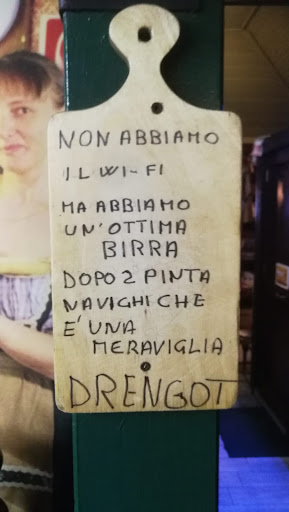 NON ABBIAMO
IL WI-FI
MA ABBIAMO
UN'OTTIMA
BIRRA
DOPO 2 PINTA
NAVIGHI CHE
E' UNA
MERAVIGLIA
DRENGOT